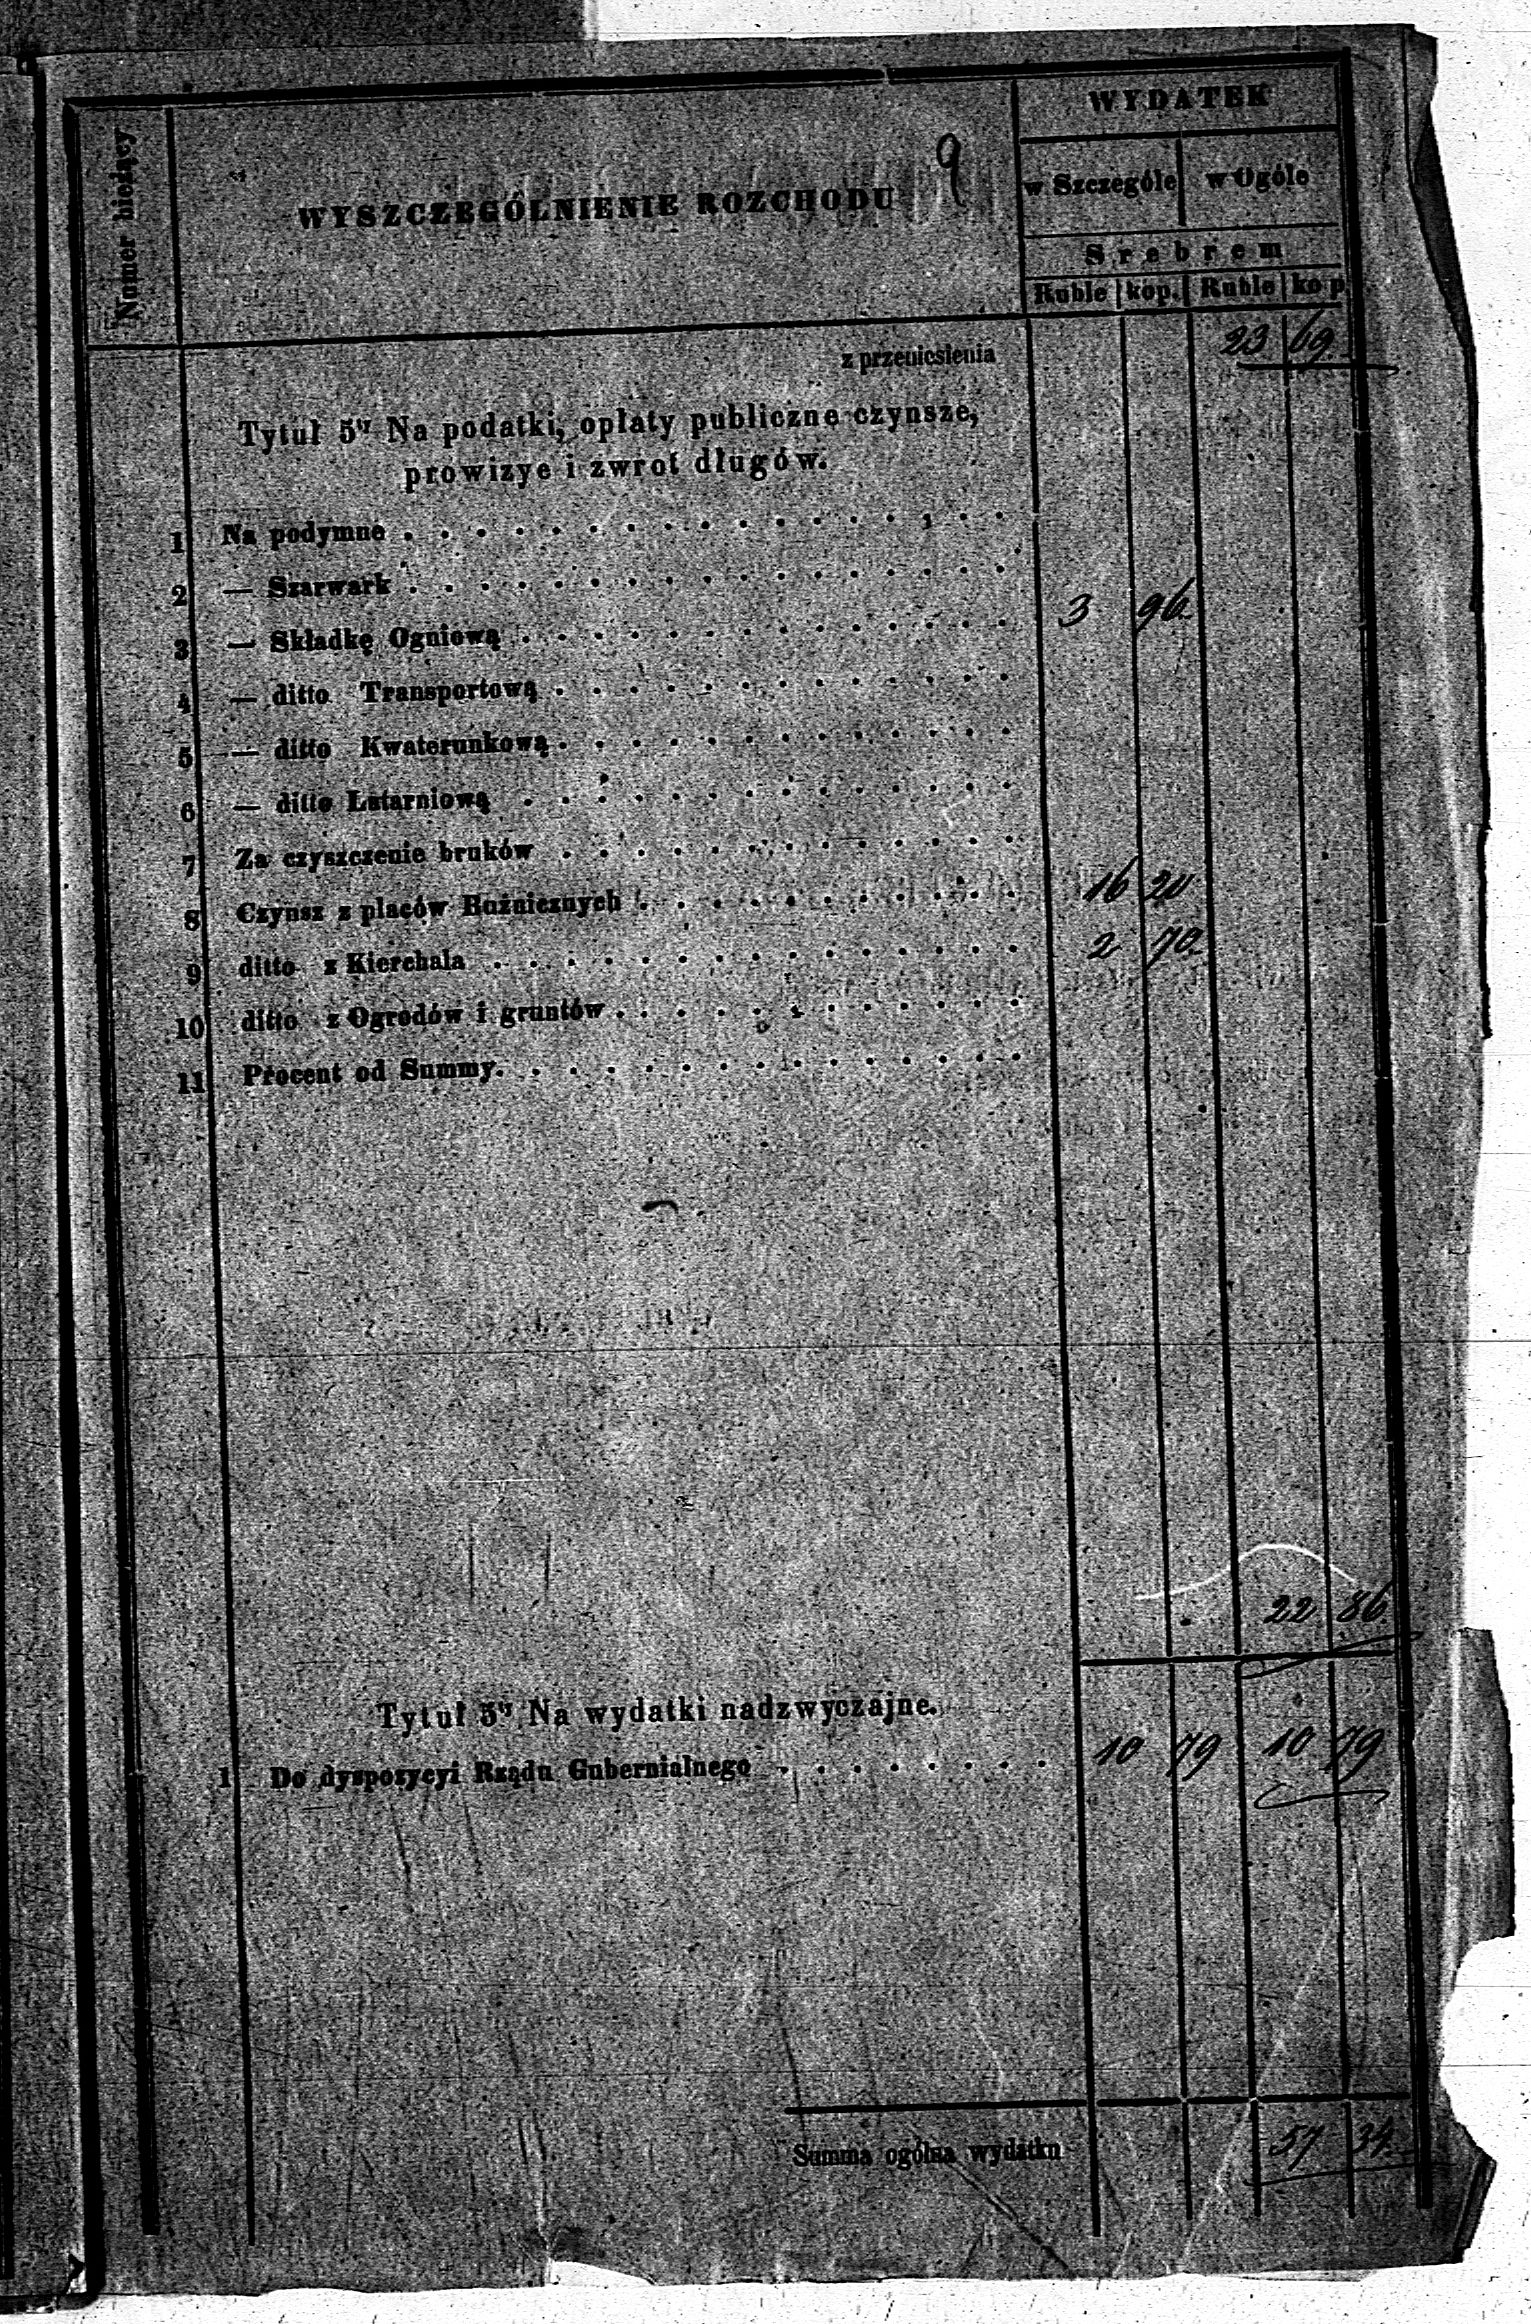 Numer bieżący
WYSZCZEGÓLNIENIE ROZCHODU
9
WYDATEK
w Szczególe w Ogóle
Srebrem
Ruble kop. Ruble kop.
z przeniesienia 23 69
Tytuł 5ty Na podatki, opłaty publiczne czynsze,
prowizye i zwrot długów.
1 Na podymne
2 — Szarwark
3 — Składkę Ogniową 3 96
4 — ditto Transportową
5 — ditto Kwaterunkową
6 — ditto Latarniową
7 Za czyszczenie bruków
8 Czynsz z placów Buźnicznych 16 20
9 ditto z Kierchala 2 70
10 ditto z Ogrodów i gruntów
11 Procent od Summy.
22 86
Tytuł 5ty Na wydatki nadzwyczajne.
1 Do dyspozycyi Rządu Gubernialnego 10 79 10 79
Summa ogólna wydatku 57 34